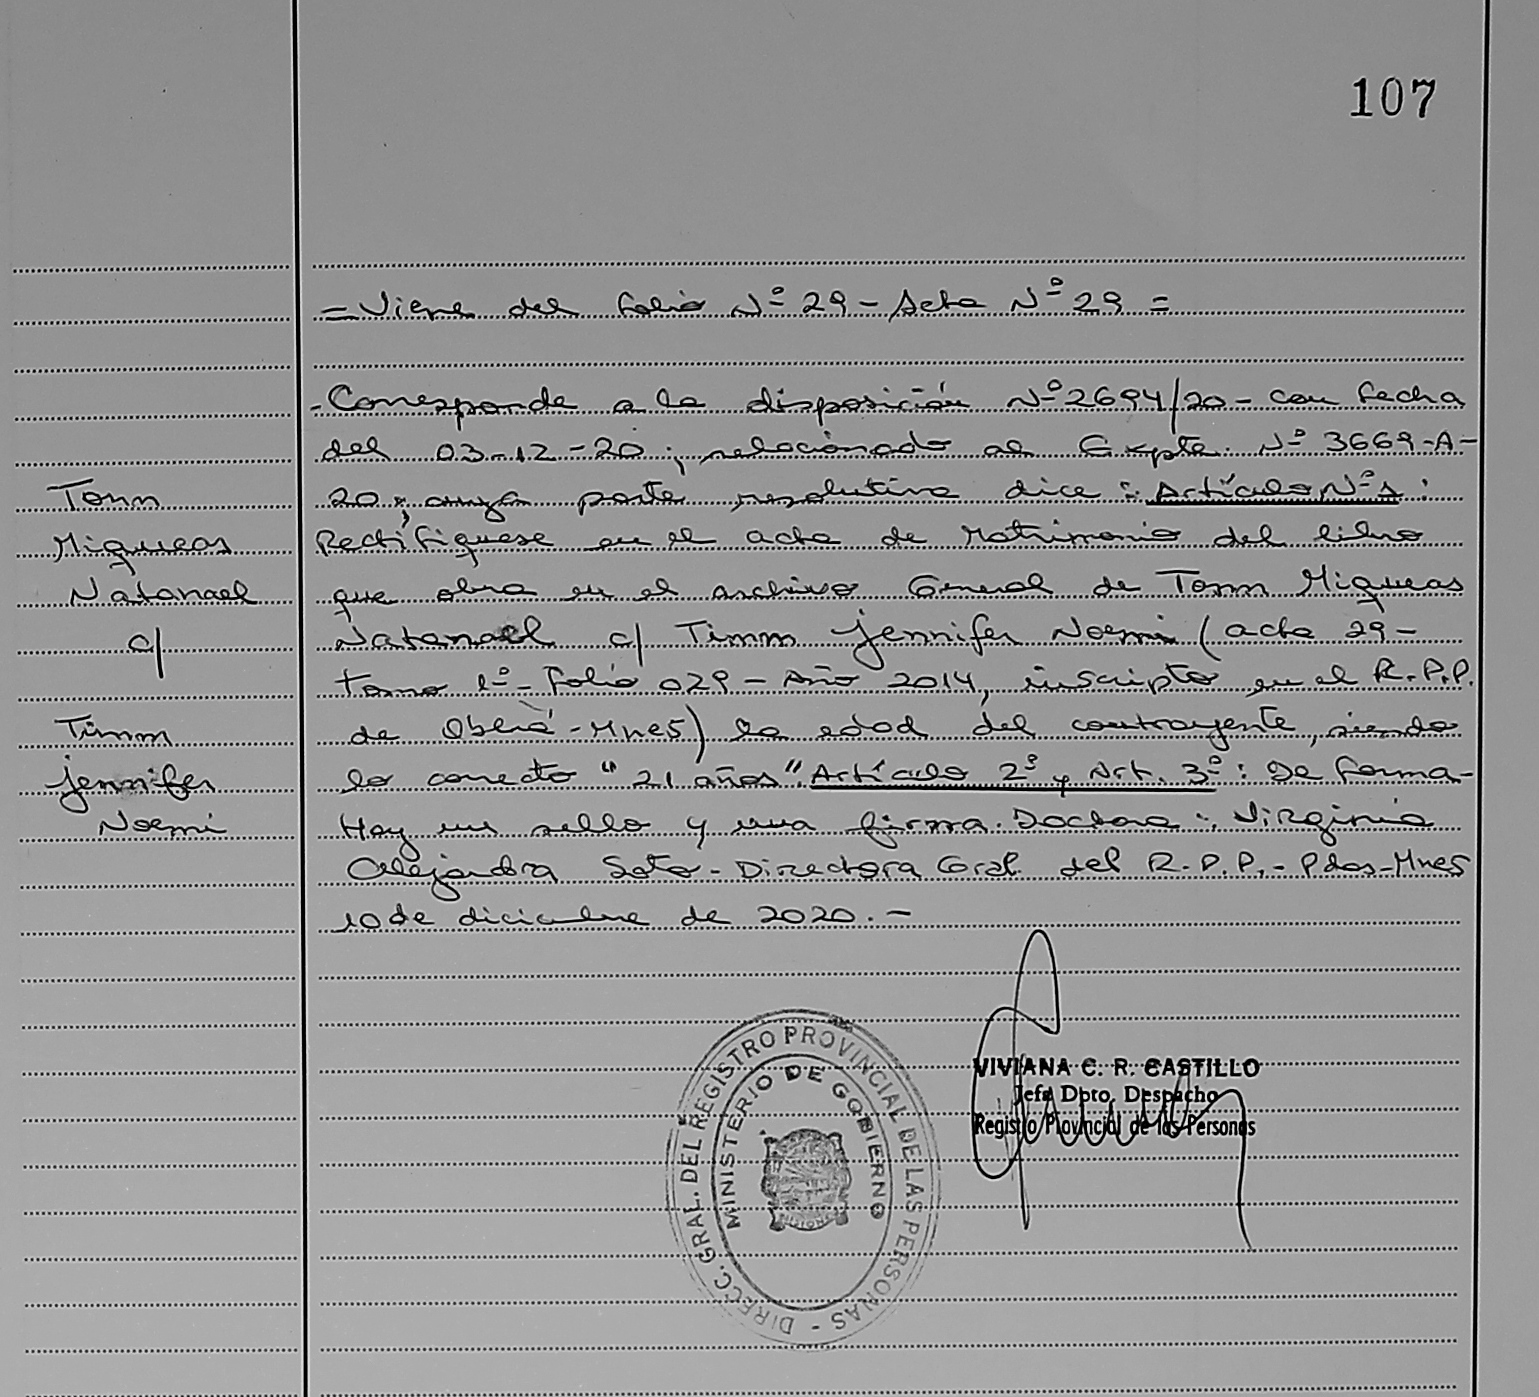 107
= Viene del folio Nº 29 - Acta Nº 29 =
- Corresponde a la disposición Nº 2694/20 - con fecha
del 03-12-20; relacionado al Expte. Nº 3669-A-
20; cuya parte resolutiva dice: Artículo Nº 1:
Rectifíquese en el acta de Matrimonio del libro
que obra en el archivo General de Tonn Miqueas
Natanael c/ Timm Jennifer Noemi (acta 29-
tomo 1º - Folio 029 - Año 2014, inscripto en el R.P.P.
de Oberá - Mnes) la edad del contrayente, siendo
lo correcto "21 años". Artículo 2º y Art. 3º: De forma-
Hay un sello y una firma. Doctora: Virginia
Alejandra Soto - Directora Gral. del R.P.P. - Pdas - Mnes
10 de diciembre de 2020. -
Tonn
Miqueas
Natanael
c/
Timm
Jennifer
Noemi
DIRECC. GRAL. DEL REGISTRO PROVINCIAL DE LAS PERSONAS -
MINISTERIO DE GOBIERNO
MISIONES
VIVIANA C. R. CASTILLO
Jefa Dpto. Despacho
Registro Provincial de las Personas